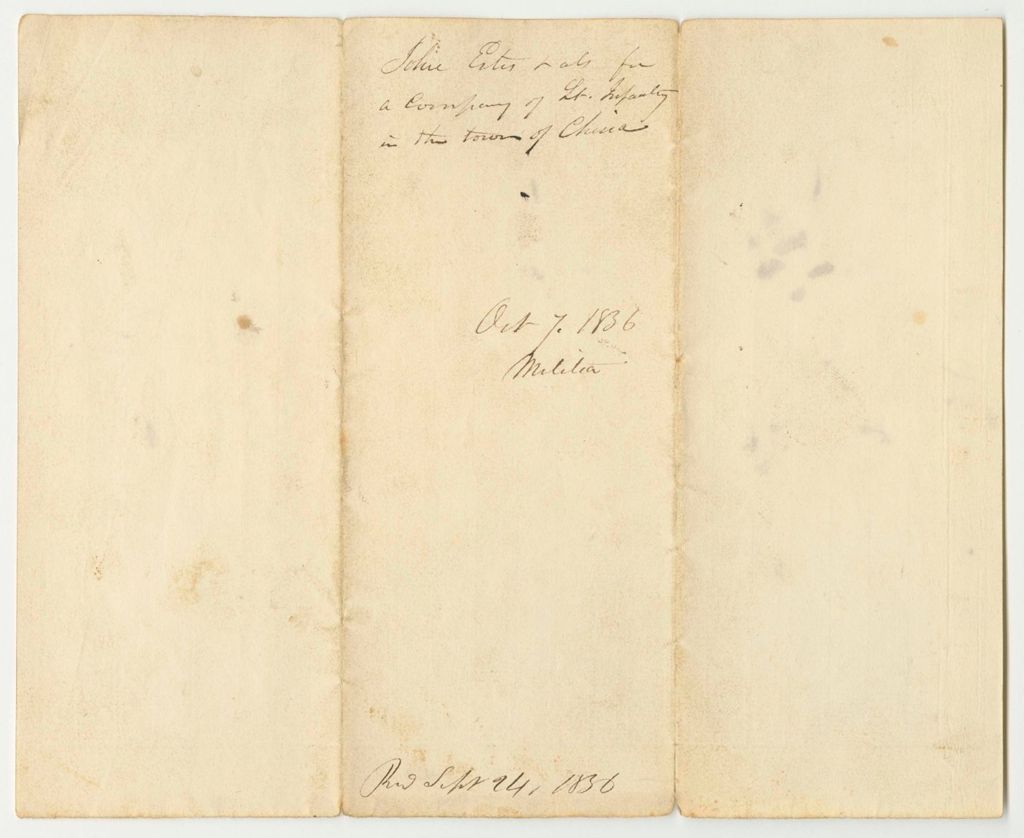 John Estes & als for
a company of Lt. Infantry
in the town of China
Oct 7. 1836
Militia
Recd Sept 24, 1836